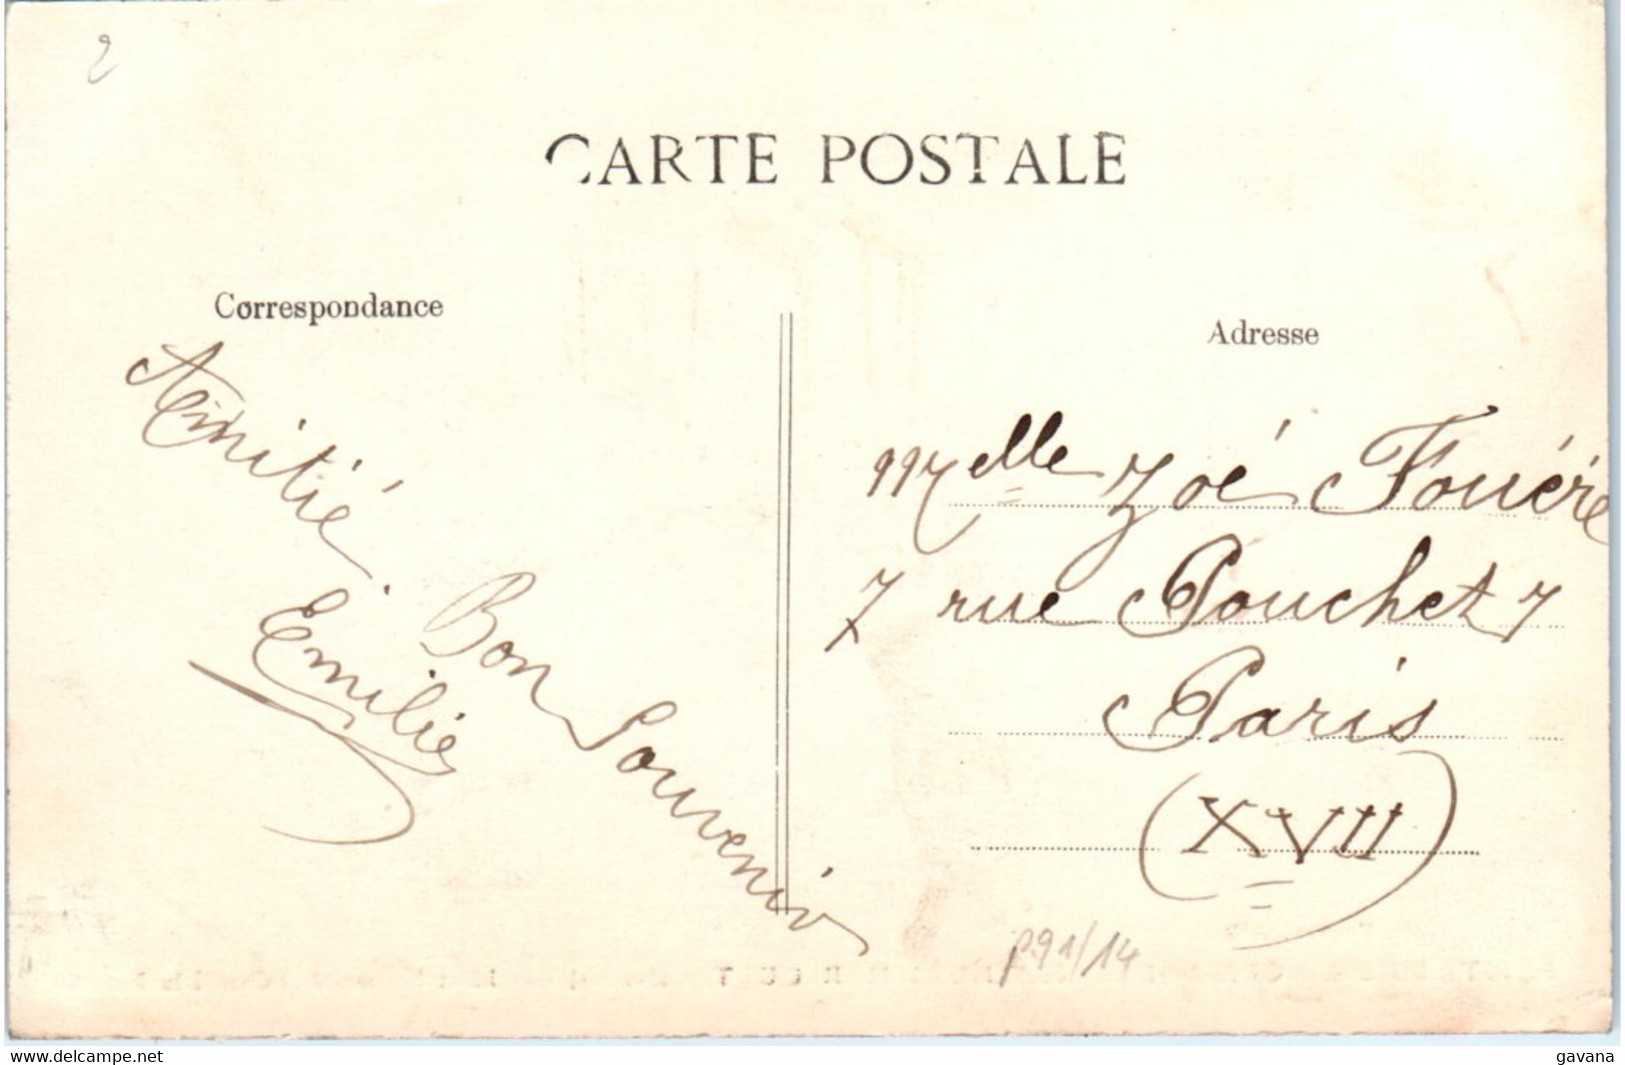 2
CARTE POSTALE
Correspondance
Adresse
Amitié
Bon Souvenir
Emilie
Melle Zoé Fouéré
7 rue Pouchet 7
Paris
(XVII)
p91/14
www.delcampe.net
gavana